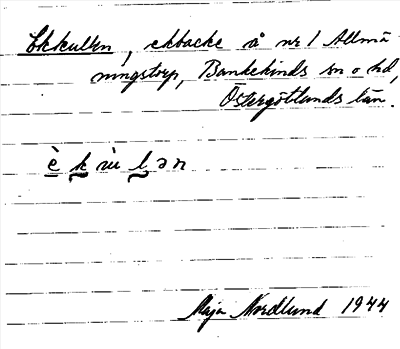 Ekkullen, ekbacke å nr 1 Allmä-
ningstorp, Bankekinds sn o hd,
Östergötlands län.
è k ù l ə n
Maja Nordlund 1944